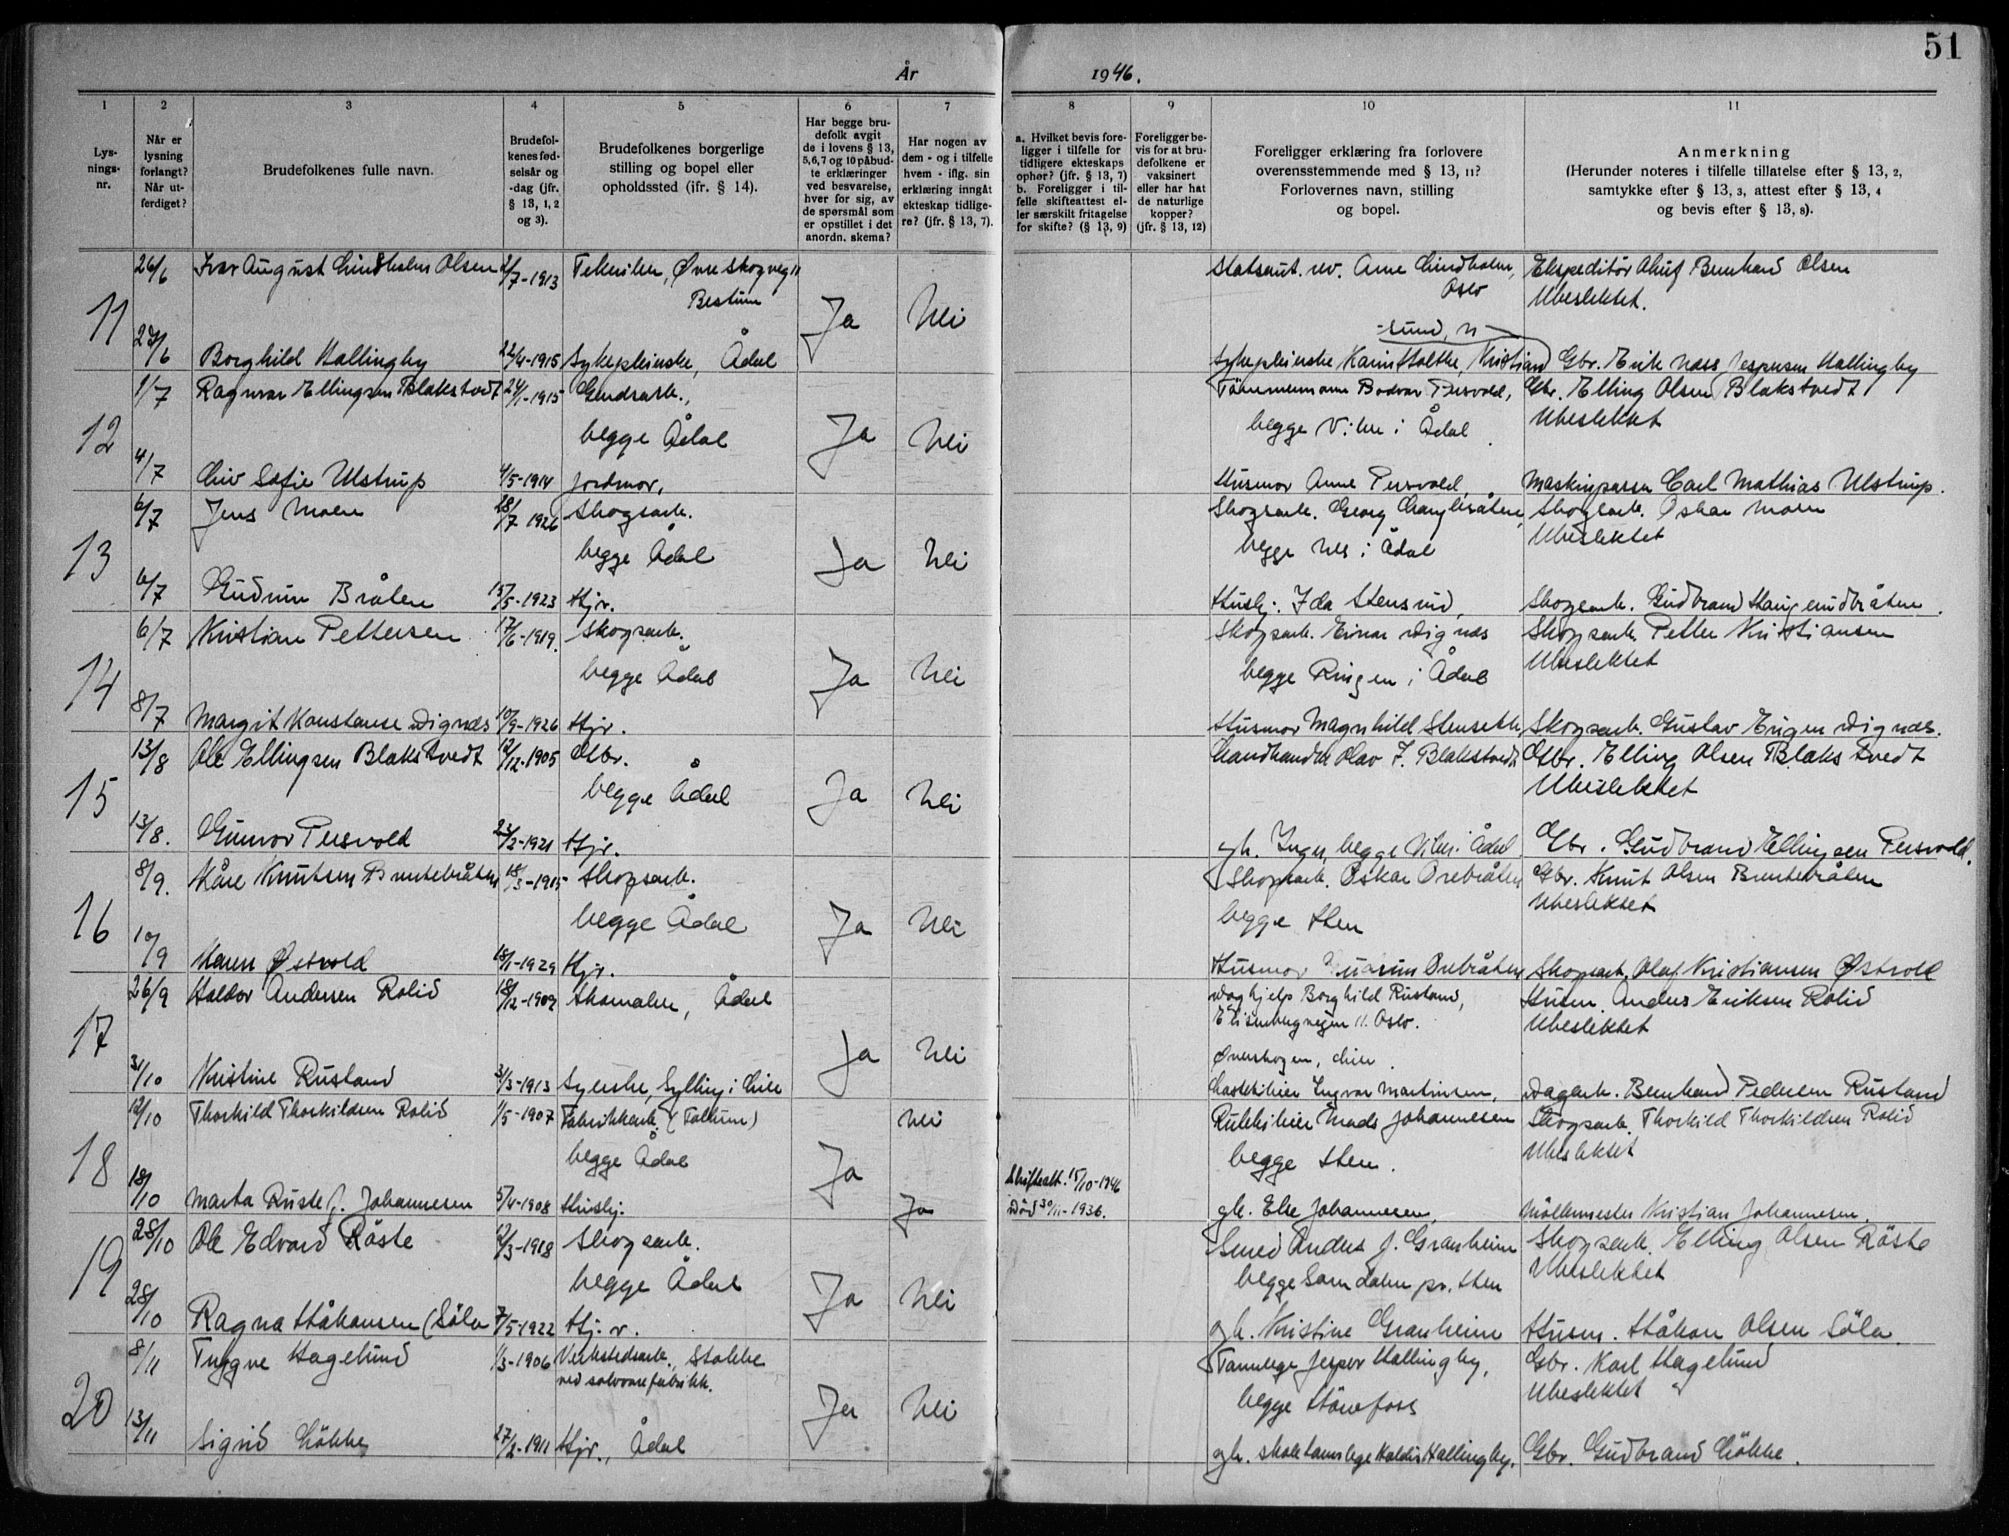 51
År 1946.
1 2 3 4 5 6 7 8 9 10 11
Lys-
nings-
nr.
Når er
lysning
forlangt?
Når ut-
ferdiget?
Brudefolkenes fulle navn.
Brudefol-
kenes fød-
selsår og
-dag (jfr.
§ 13, 1, 2
og 3).
Brudefolkenes borgerlige
stilling og bopel eller
opholdssted (ifr. § 14).
Har begge bru-
defolk avgit
de i lovens § 13,
5,6,7 og 10 påbud-
te erklæringer
ved besvarelse,
hver for sig, av
de spørsmål som
er opstillet i det
anordn. skema?
Har nogen av
dem - og i tilfelle
hvem - iflg. sin
erklæring inngåt
ekteskap tidlige-
re? (jfr. § 13, 7).
a. Hvilket bevis fore-
ligger i tilfelle for
tidligere ekteskaps
ophør? (jfr. § 13, 7)
b. Foreligger i til-
felle skifteattest el-
ler særskilt fritagelse
for skifte? (§ 13, 9)
Foreligger be-
vis for at bru-
defolkene er
vaksinert
eller har hat
de naturlige
kopper?
(jfr. § 13, 12)
Foreligger erklæring fra forlovere
overensstemmende med § 13, 11?
Forlovernes navn, stilling
og bopel.
Anmerkning
(Herunder noteres i tilfelle tillatelse efter § 13, 2,
samtykke efter § 13, 3, attest efter § 13, 4
og bevis efter § 13, 8).
11
26/6 Ivar August Lindholm Olsen 2/7-1913 Tekniker, Øvre Skogveg 11
Bestum
Ja Nei
Statsaut. rev. Arne Lindholm,
Oslo
Ekspeditør Bernhard Olsen
Ubeslektet.
Borghild Hallingby 22/4-1915 Sykepleierske, Ådal
-sund, N
Sykepleierske Karin Holthe, Kristian
Gbr. Erik Næss Jespersen Hallingby
12
1/7 Ragnvar Ellingsen Blakstvedt 24/1-1915 Gårdsarb.,
begge Ådal
Ja Nei
Tømmermann Bodvar Persvold,
begge Viker i Ådal.
Gbr. Elling Olsen Blakstvedt
Ubeslektet
4/7 Liv Sofie Ulstrup 4/5-1914 Jordmor,
Husmor Anne Persvold,
Maskinpasser Carl Mathias Ulstrup.
13
6/7 Jens Moen 28/7 1926 Skogsarb.
begge Ådal
Ja Nei
Skogsarb. Georg
begge Nes i Ådal
Skogsarb. Oskar Moen
Ubeslektet
6/7 Gudrun Bråten 15/5-1923 Hjv.
Hushj. Ida Stensrud,
Skogsarb. Gudbrand Haugerudbråten.
14
6/7 Kristian Pettersen 17/6-1919. Skogsarb.
begge Ådal
Ja Nei
Skogsarb. Einar Dignæs
begge Ringen i Ådal
Skogsarb. Petter Kristiansen
Ubeslektet
8/7 Margit Konstanse Dignæs 10/9-1926 Hjv.
Husmor Magnhild Stenseth,
Skogsarb. Gustav Eugen Dignæs.
15
13/8 Ole Ellingsen Blakstvedt 12/12-1905 Gbr.
begge Ådal
Ja Nei
Landhandler Olav J. Blakstvedt
Gbr. Elling Olsen Blakstvedt
Ubeslektet
13/8. Gunvor Persvold 23/2-1921 Hjv.
gh. Inger, begge Viker i Ådal.
Gbr. Gudbrand Ellingsen Persvold.
16
8/9. Kåre Knutsen Buntebråten 18/3-1915 Skogsarb.
begge Ådal
Ja Nei
Skogsarb. Oskar Orebråten
begge Hen
Gbr. Knut Olsen Buntebråten
Ubeslektet
10/9 Maren Østvold 18/1-1929 Hjv.
Husmor Gudrun Orebråten
Skogsarb. Olaf Kristiansen Østvold
17
26/9 Haldor Andersen Rolid 18/12-1909 Skomaker, Ådal
Ja Nei
Daghjelp Borghild Rustand,
Elisenbergvegen 11. Oslo.
Husm. Anders Eriksen Rolid
Ubeslektet
Øverskogen, Lier.
3/10 Kristine Rustand 3/3-1913 Syerske, Sylling i Lier
Lastebileier Ingvar Martinsen,
Dagarb. Bernhard Pedersen Rustand
18
12/10 Thorkild Thorkildsen Rolid 1/5-1907 Fabrikkarb. (Follum)
begge Ådal
Ja Nei
Rutebileier Mads Johannesen
begge Hen.
Skogsarb. Thorkild Thorkildsen Rolid
Ubeslektet
18/10 Marta Ruste f. Johannesen 5/4-1908 Hushj.
Ja
Skifteatt. 15/10-1946
Død 30/11-1936.
gh. Else Johannesen,
Møllemester Kristian Johannesen.
19
28/10 Ole Edvard Röste 12/3-1918 Skogsarb.
begge Ådal
Ja Nei
Smed Anders J. Granheim
begge Somdalen pr. Hen
Skogsarb. Elling Olsen Röste
Ubeslektet
28/10 Ragna Håkansen (Søla 7/5-1922 Hj.v.
gh. Kristine Granheim
Husm. Håkon Olsen Søla
20
8/11 Trygve Hagelund 1/3-1906 Verkstedsarb., Stokke
ved sølvvarefabrikk.
Ja Nei
Tannlege Jesper Hallingby,
begge Hönefoss
Gbr. Karl Hagelund
Ubeslektet
13/11 Sigrid Løkke 27/2-1911 Hjv., Ådal
gh. skoletannlege Haldis Hallingby.
Gbr. Gudbrand Løkke.